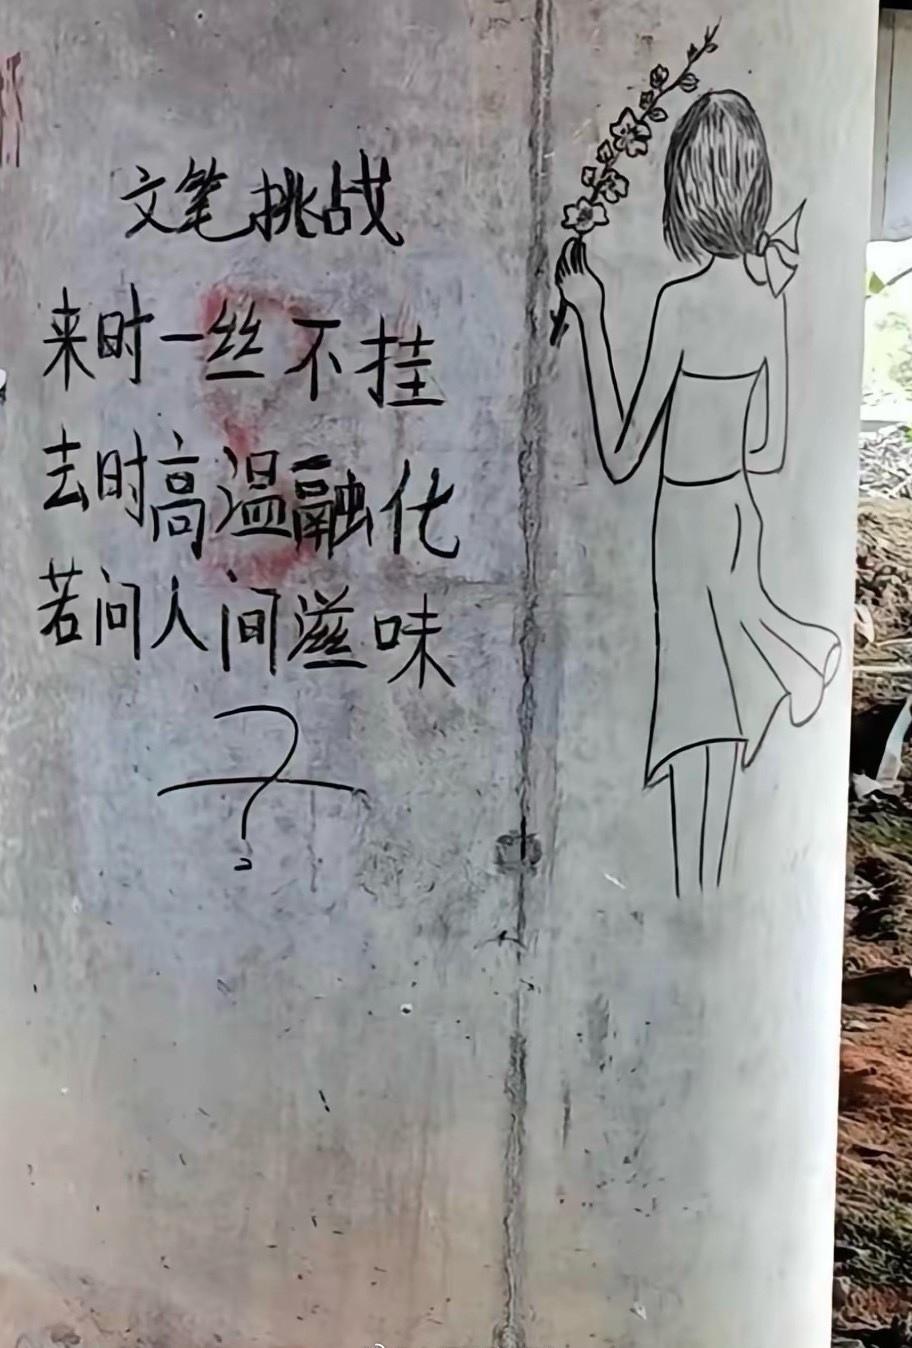 文笔挑战
来时一丝不挂
去时高温融化
若问人间滋味
?